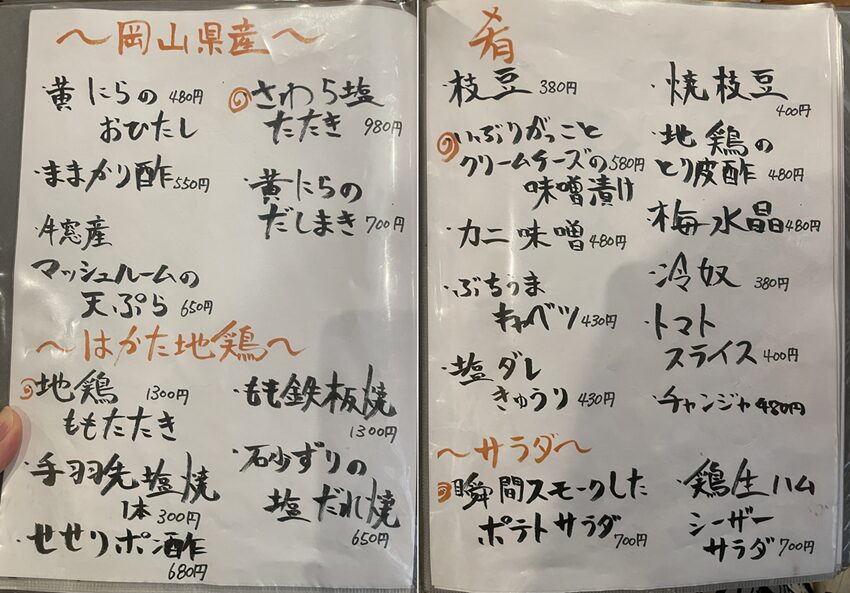 ～岡山県産～
・黄にらの 480円
おひたし
・ままかり酢 550円
牛窓産
マッシュルームの
天ぷら 650円
さわら塩
たたき 980円
・黄にらの
だしまき 700円
～はかた地鶏～
地鶏 1300円
ももたたき
・手羽先塩焼
1本300円
・せせりポン酢
680円
・もも鉄板焼
1300円
・砂ずりの
塩だれ焼
650円
肴
・枝豆 380円
いぶりがっこと
クリームチーズの 580円
味噌漬け
・カニ味噌 480円
・ぶちうま
キャベツ 430円
・塩ダレ
きゅうり 430円
・焼枝豆
400円
・地鶏の
とり皮酢 480円
・梅水晶 480円
・冷奴 380円
・トマト
スライス 400円
・チャンジャ 480円
～サラダ～
瞬間スモークした
ポテトサラダ 700円
・鶏生ハム
シーザー
サラダ 700円